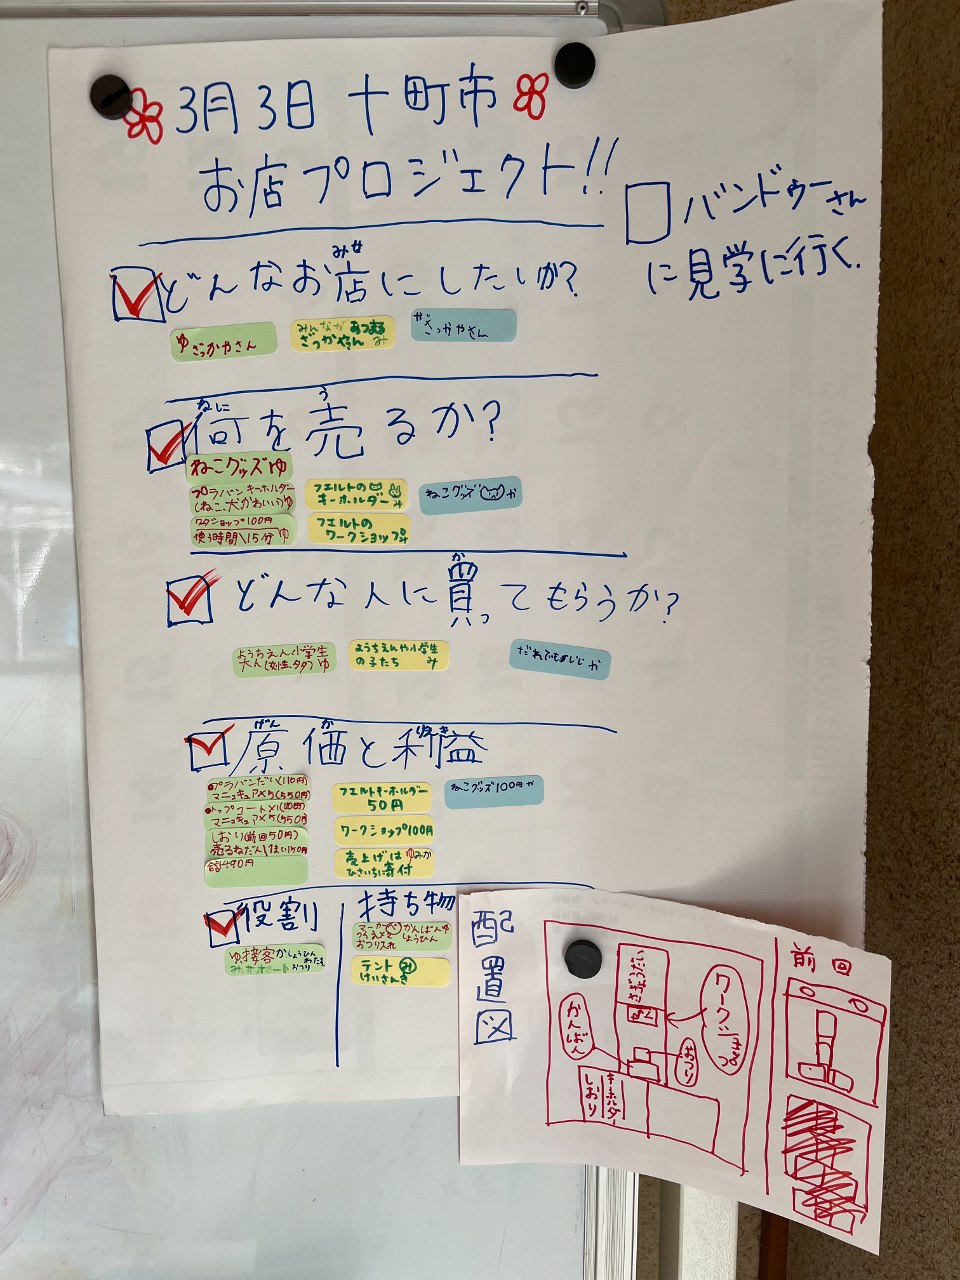 3月3日 十町市
お店プロジェクト!!
バンドゥーさん
に見学に行く.
どんなお店にしたいか?
みせ
ゆ ざっかやさん
みんながあつまる
ざっかやさん み
ざっかやさん か
何を売るか?
なに う
ねこグッズゆ
プラバンキーホルダー
(ねこ、犬かわいい)ゆ
ワクショップ100円
使う時間 15分 ゆ
フェルトの
キーホルダー み
フェルトの
ワークショップ み
ねこグッズ か
どんな人に買ってもらうか?
か
ようちえん小学生
大人(女性、タタ) ゆ
ようちえんや小学生
の子たち み
だれでもいい か
原価と利益
げん か りえき
プラバンだい(110円)
マニュキュア×5(550円)
トップコート×1(110円)
マニュキュア×5(550円)
しおり(前回50円)
売るねだん 1まい150円
合計
フェルトキーホルダー
50円
ワークショップ100円
売上げは ゆみか
ひさいちに寄付
ねこグッズ100円 か
役割
ゆ 接客 か しょうひん
わたす
み サポート おつり
持ち物
かんばん ゆ
つくえ しょうひん
おつり入れ
テント み
けいさんき
配置図
さぎょうだい
ワークショップ
かんばん
おつり
しおり
キーホルダー
前回